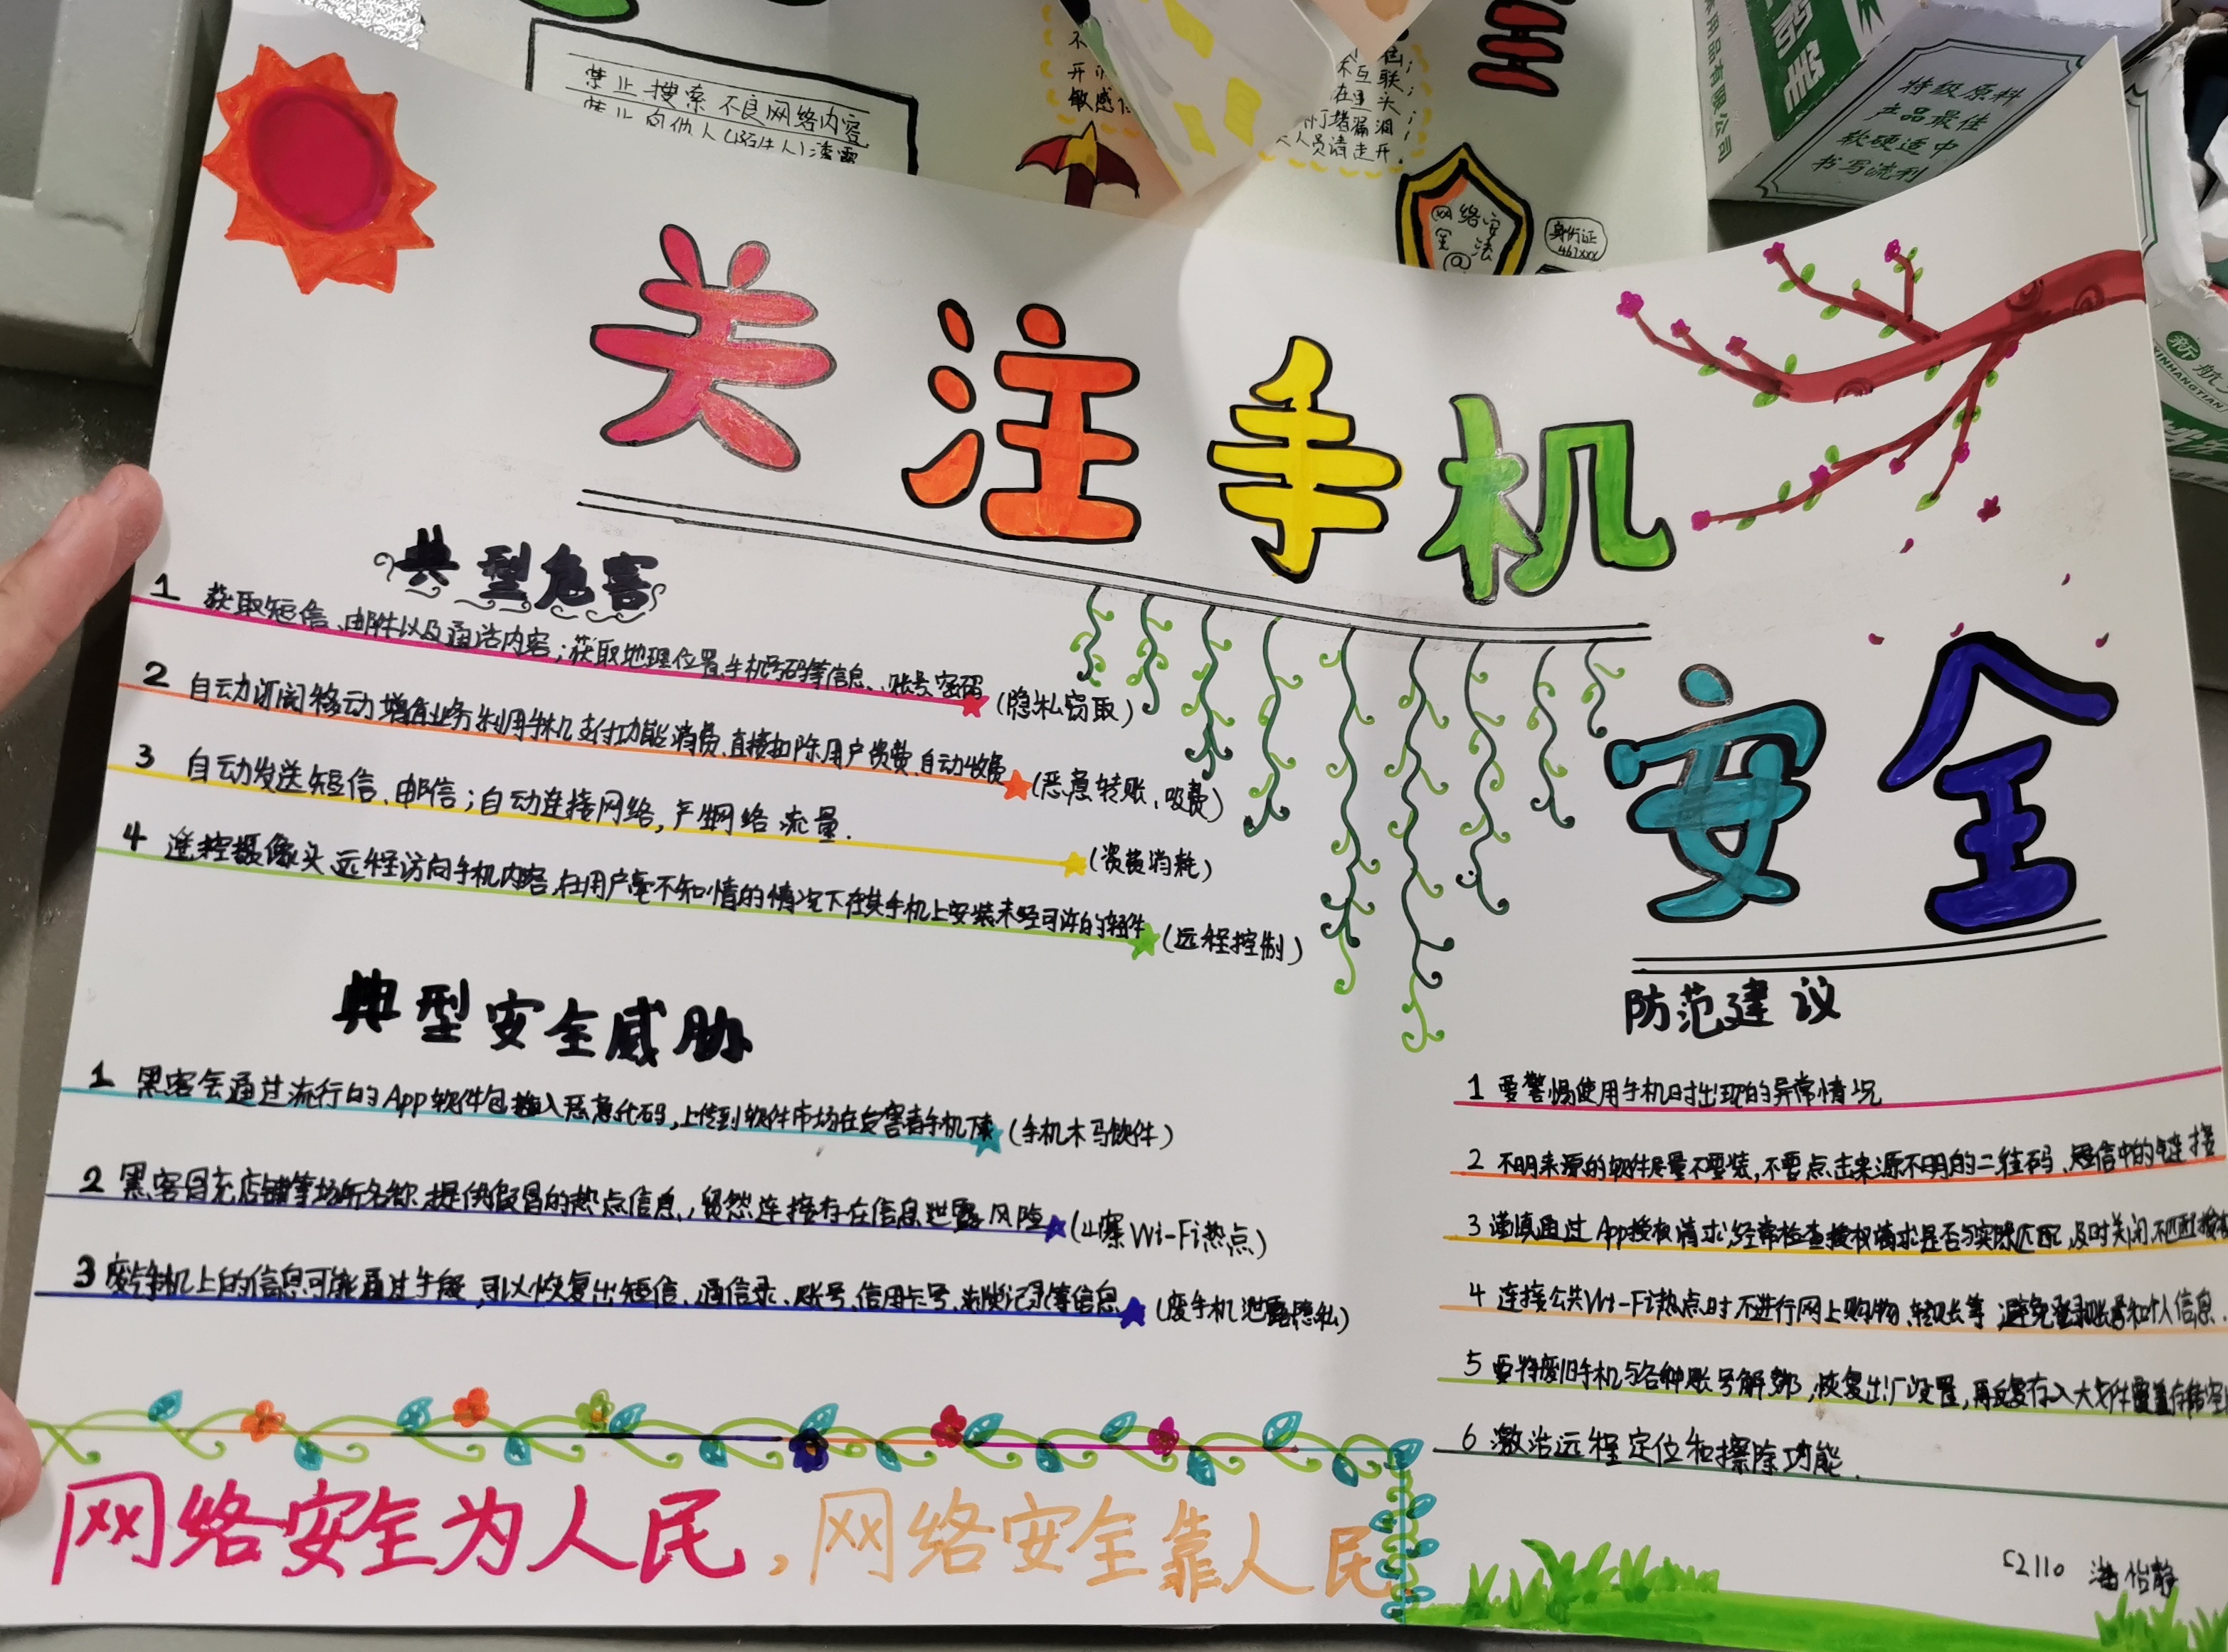 禁止搜索不良网络内容
禁止向他人(陌生人)透露
敏感
互联
在里头
堵漏洞
人员请走开.
网络安
全法
@
身份证
467xxx
用品有限公司
特级原料
产品最佳
软硬适中
书写流利
新航
XINHANGTIAN
关注手机
安全
典型危害
1 获取短信、邮件以及通话内容;获取地理位置、手机号码等信息、账号密码(隐私窃取)
2 自动订阅移动增值业务利用手机支付功能消费、直接扣除用户资费、自动收费(恶意转账、吸费)
3 自动发送短信、邮信;自动连接网络,产生网络流量.(资费消耗)
4 遥控摄像头、远程访问手机内容,在用户毫不知情的情况下在其手机上安装未经可许的软件(远程控制)
典型安全威胁
1 黑客会通过流行的App软件包插入恶意代码,上传到软件市场在受害者手机下载(手机木马软件)
2 黑客冒充店铺等场所名称,提供假冒的热点信息,贸然连接存在信息泄露风险(山寨Wi-Fi热点)
3 废弃手机上的信息可能通过手段,可以恢复出短信、通信录、账号、信用卡号、浏览记录等信息(废手机泄露隐私)
防范建议
1 要警惕使用手机时出现的异常情况
2 不明来源的软件尽量不要装,不要点击来源不明的二维码、短信中的链接
3 谨慎通过App授权请求,经常检查授权请求是否与实际匹配,及时关闭不匹配授权
4 连接公共Wi-Fi热点时不进行网上购物、转账等,避免登录账号和个人信息.
5 要将废旧手机与各种账号解绑,恢复出厂设置,再反复存入大文件覆盖存储空
6 激活远程定位和擦除功能.
网络安全为人民,网络安全靠人民
52110 潘怡静